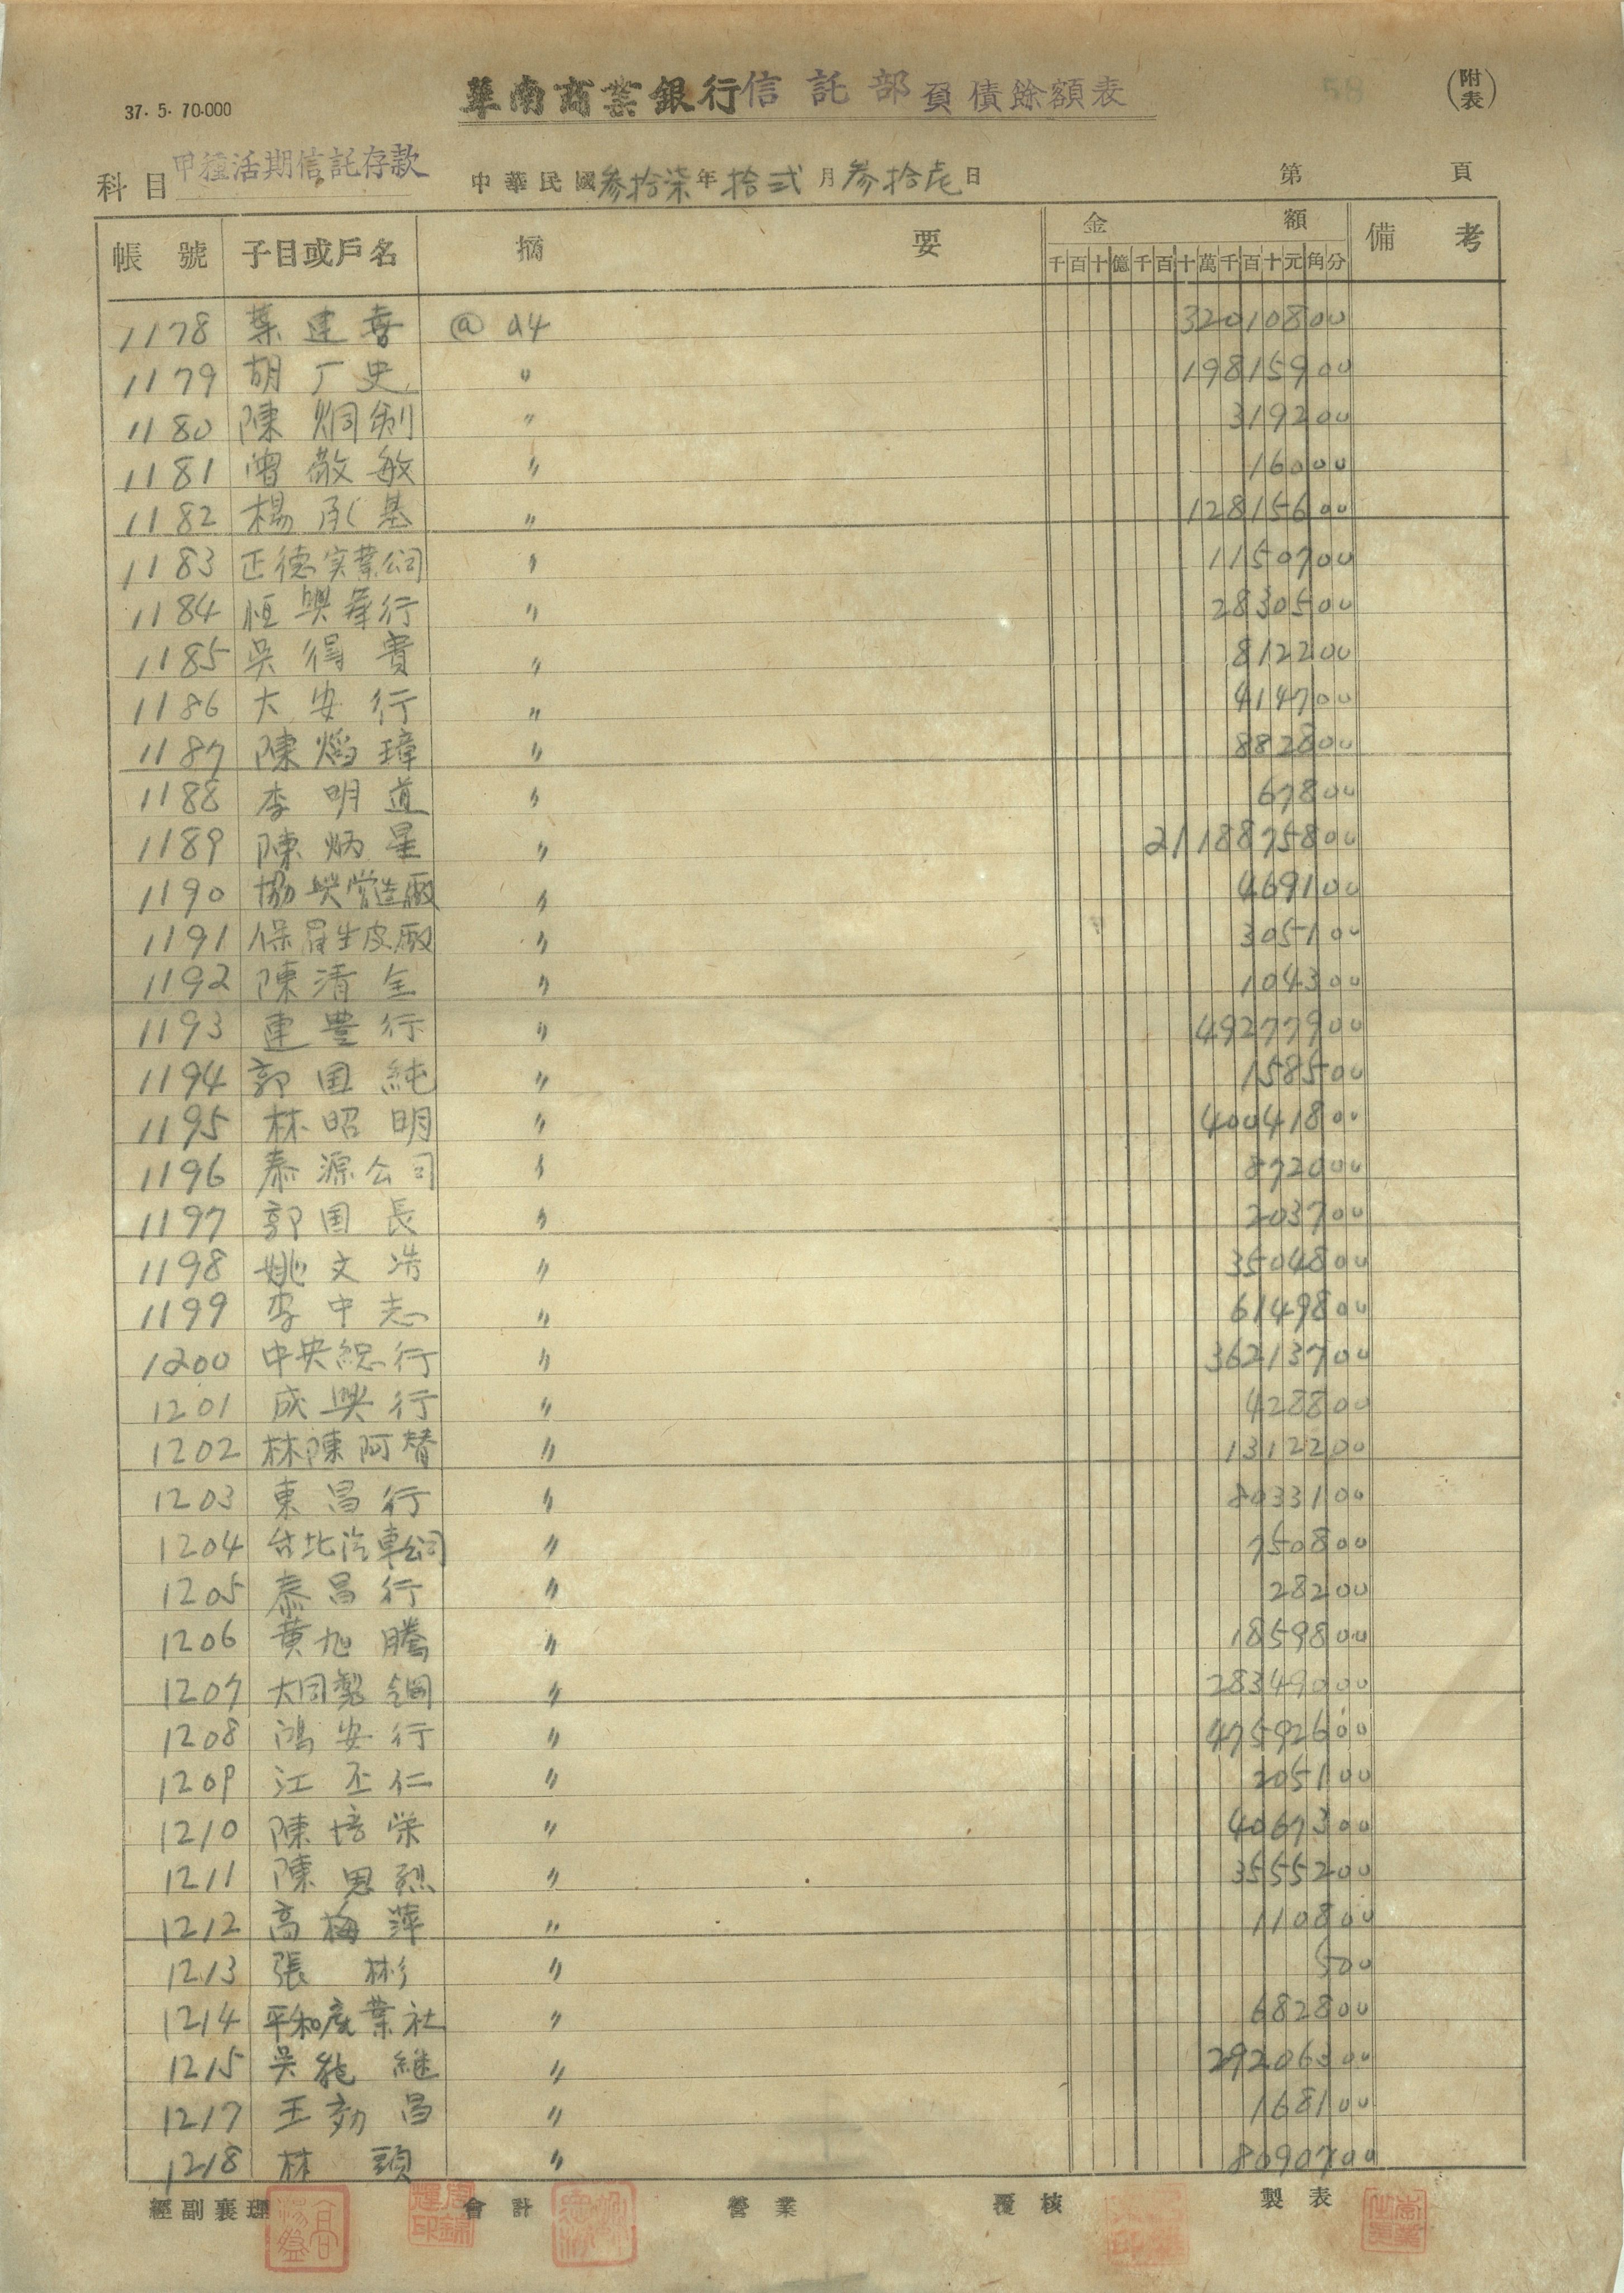 37. 5. 70.000
華南商業銀行信託部負債餘額表
58
(附表)
科目 甲種活期信託存款 中華民國參拾柒年拾弍月參拾壱日 第 頁
帳號 子目或戶名 摘要 金額 備考
千百十億千百十萬千百十元角分
1178 葉建喜 @ a4 32010800
1179 胡丁史 〃 19815900
1180 陳炯 〃 319200
1181 曾敬敏 〃 16000
1182 楊承基 〃 12815600
1183 正德実業公司 〃 1150700
1184 恒興華行 〃 2830500
1185 吳得費 〃 812200
1186 大安行 〃 414700
1187 陳焰璋 〃 882800
1188 李明道 〃 67800
1189 陳炳星 〃 2118875800
1190 協興營造廠 〃 469100
1191 保羅生皮廠 〃 305100
1192 陳清全 〃 104300
1193 連豊行 〃 49277900
1194 郭国純 〃 158500
1195 林昭明 〃 40041800
1196 泰源公司 〃 872000
1197 郭国長 〃 203700
1198 姚文浩 〃 3504800
1199 李中志 〃 6149800
1200 中央総行 〃 36213700
1201 成興行 〃 428800
1202 林陳阿替 〃 1312200
1203 東昌行 〃 8033100
1204 台北汽車公司 〃 750800
1205 泰昌行 〃 28200
1206 黄旭騰 〃 1859800
1207 大同製鋼 〃 28349000
1208 鴻安行 〃 47592600
1209 江丕仁 〃 205100
1210 陳培栄 〃 4067300
1211 陳思烈 〃 3555200
1212 高梅萍 〃 110800
1213 張彬 〃 500
1214 平和產業社 〃 682800
1215 吳能継 〃 29206300
1217 王効昌 〃 168100
1218 林頭 〃 8090700
經副襄理 會計 營業 覆核 製表